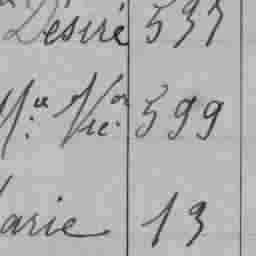 Désiré 537
M.ie Vic.or 599
arie 13